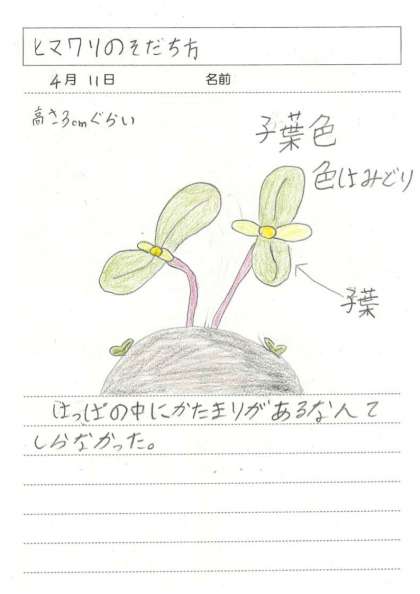 ヒマワリのそだち方
4月 11日 名前
高さ3cmぐらい
子葉色
色はみどり
子葉
はっぱの中にかたまりがあるなんて
しらなかった。